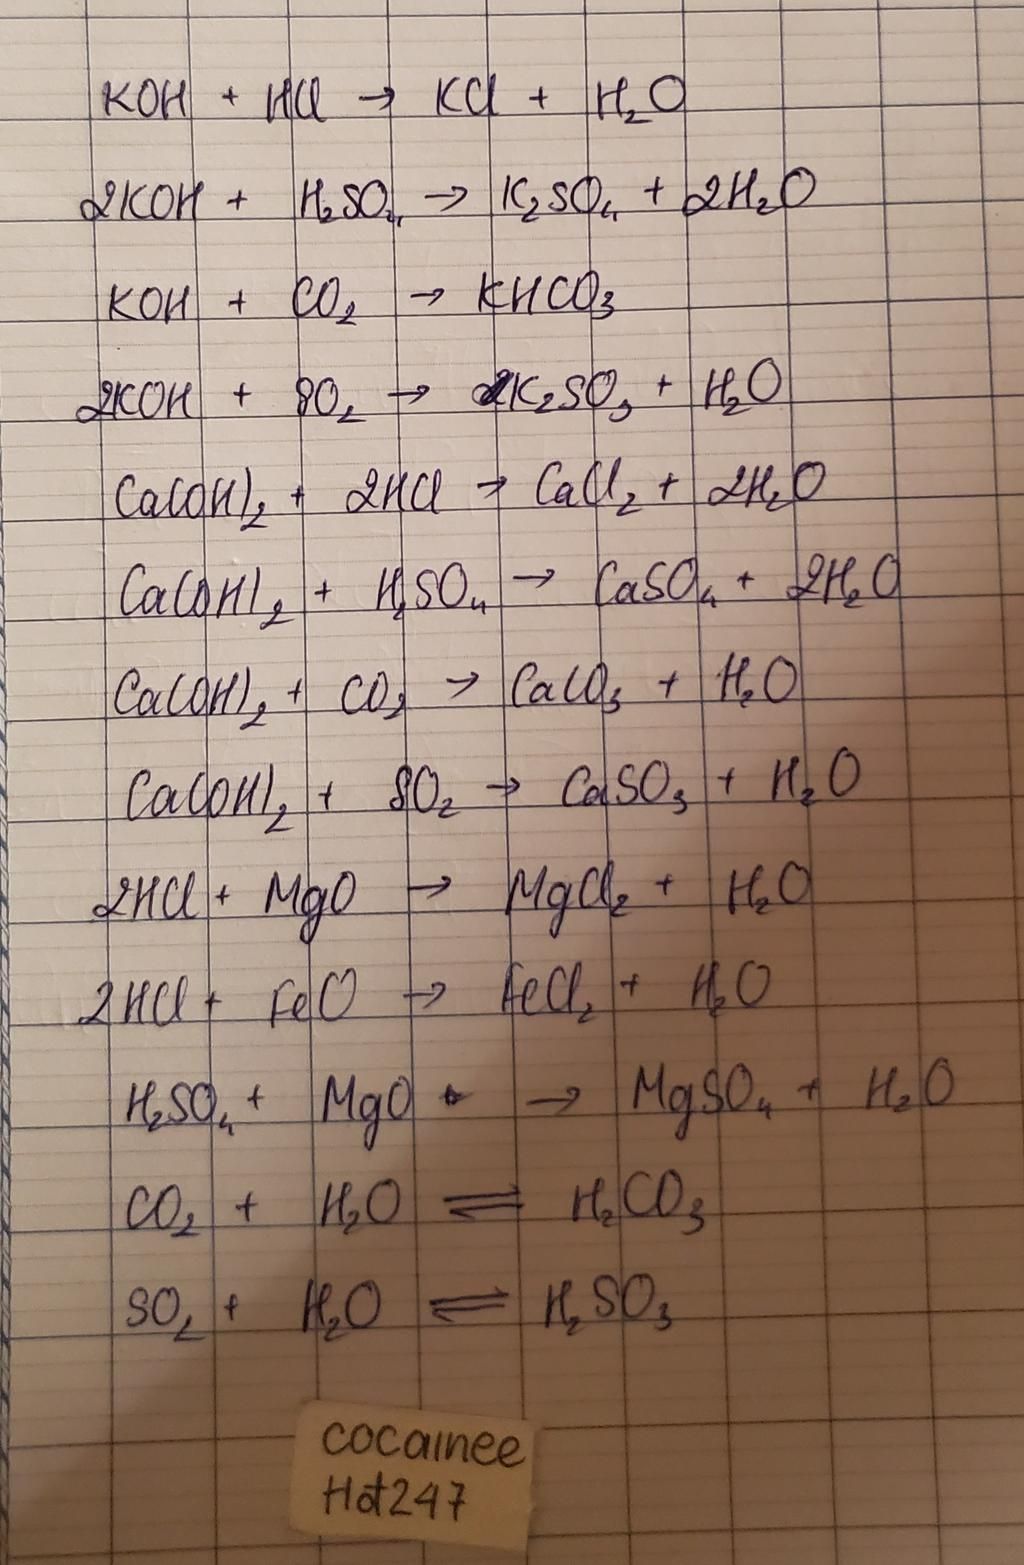 KOH + HCl → KCl + H₂O
2KOH + H₂SO₄ → K₂SO₄ + 2H₂O
KOH + CO₂ → KHCO₃
2KOH + SO₂ → K₂SO₃ + H₂O
Ca(OH)₂ + 2HCl → CaCl₂ + 2H₂O
Ca(OH)₂ + H₂SO₄ → CaSO₄ + 2H₂O
Ca(OH)₂ + CO₂ → CaCO₃ + H₂O
Ca(OH)₂ + SO₂ → CaSO₃ + H₂O
2HCl + MgO → MgCl₂ + H₂O
2HCl + FeO → FeCl₂ + H₂O
H₂SO₄ + MgO → MgSO₄ + H₂O
CO₂ + H₂O ⇌ H₂CO₃
SO₂ + H₂O ⇌ H₂SO₃
cocainee
Hot247